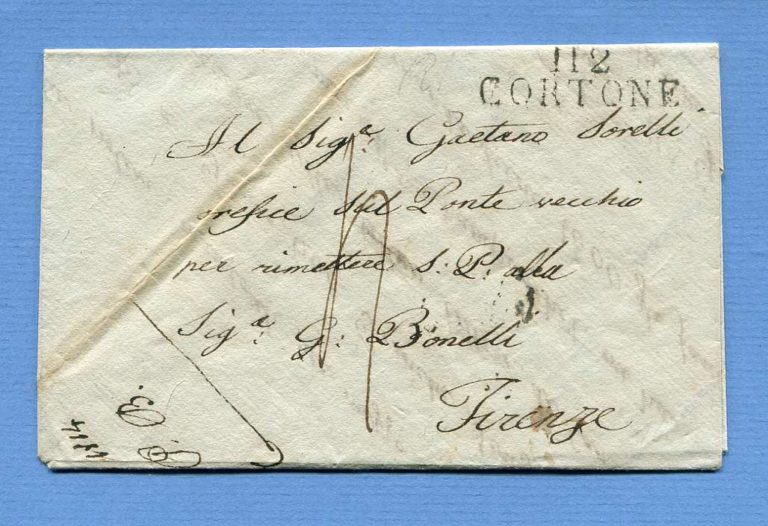 112
CORTONE
Al Sig.ᵉ Gaetano Sorelli
orefice sul Ponte vecchio
per rimettere S: P: alla
Sig.ª G: Bonelli
Firenze
1814